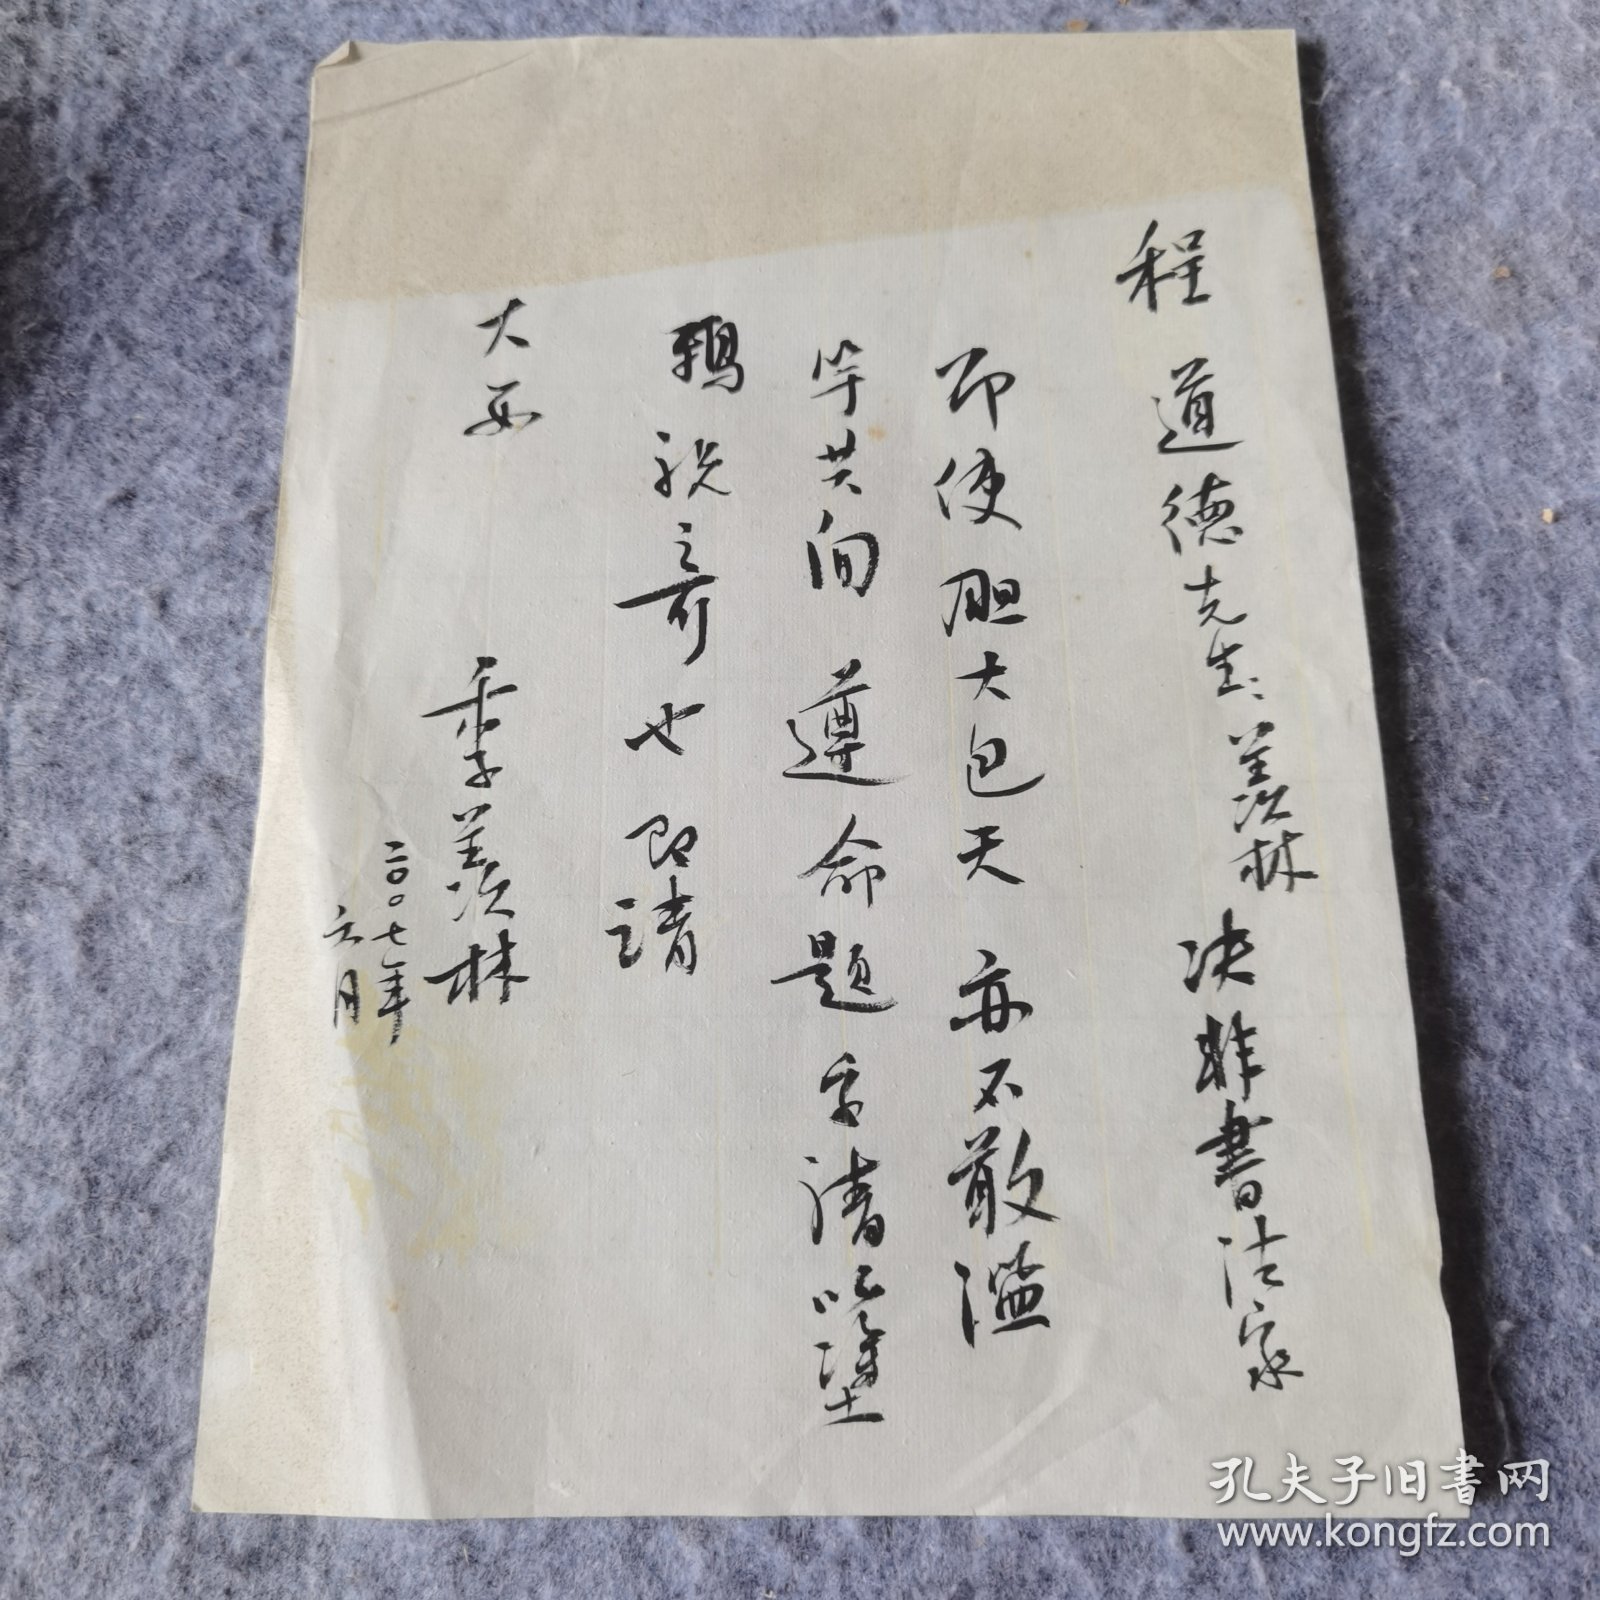 程道德先生:羡林决非书法家
即使胆大包天亦不敢滥
竽其间遵命题字请以涂
鸦视之可也即请
大安
季羡林
二〇〇七年
六月
孔夫子旧书网
www.kongfz.com